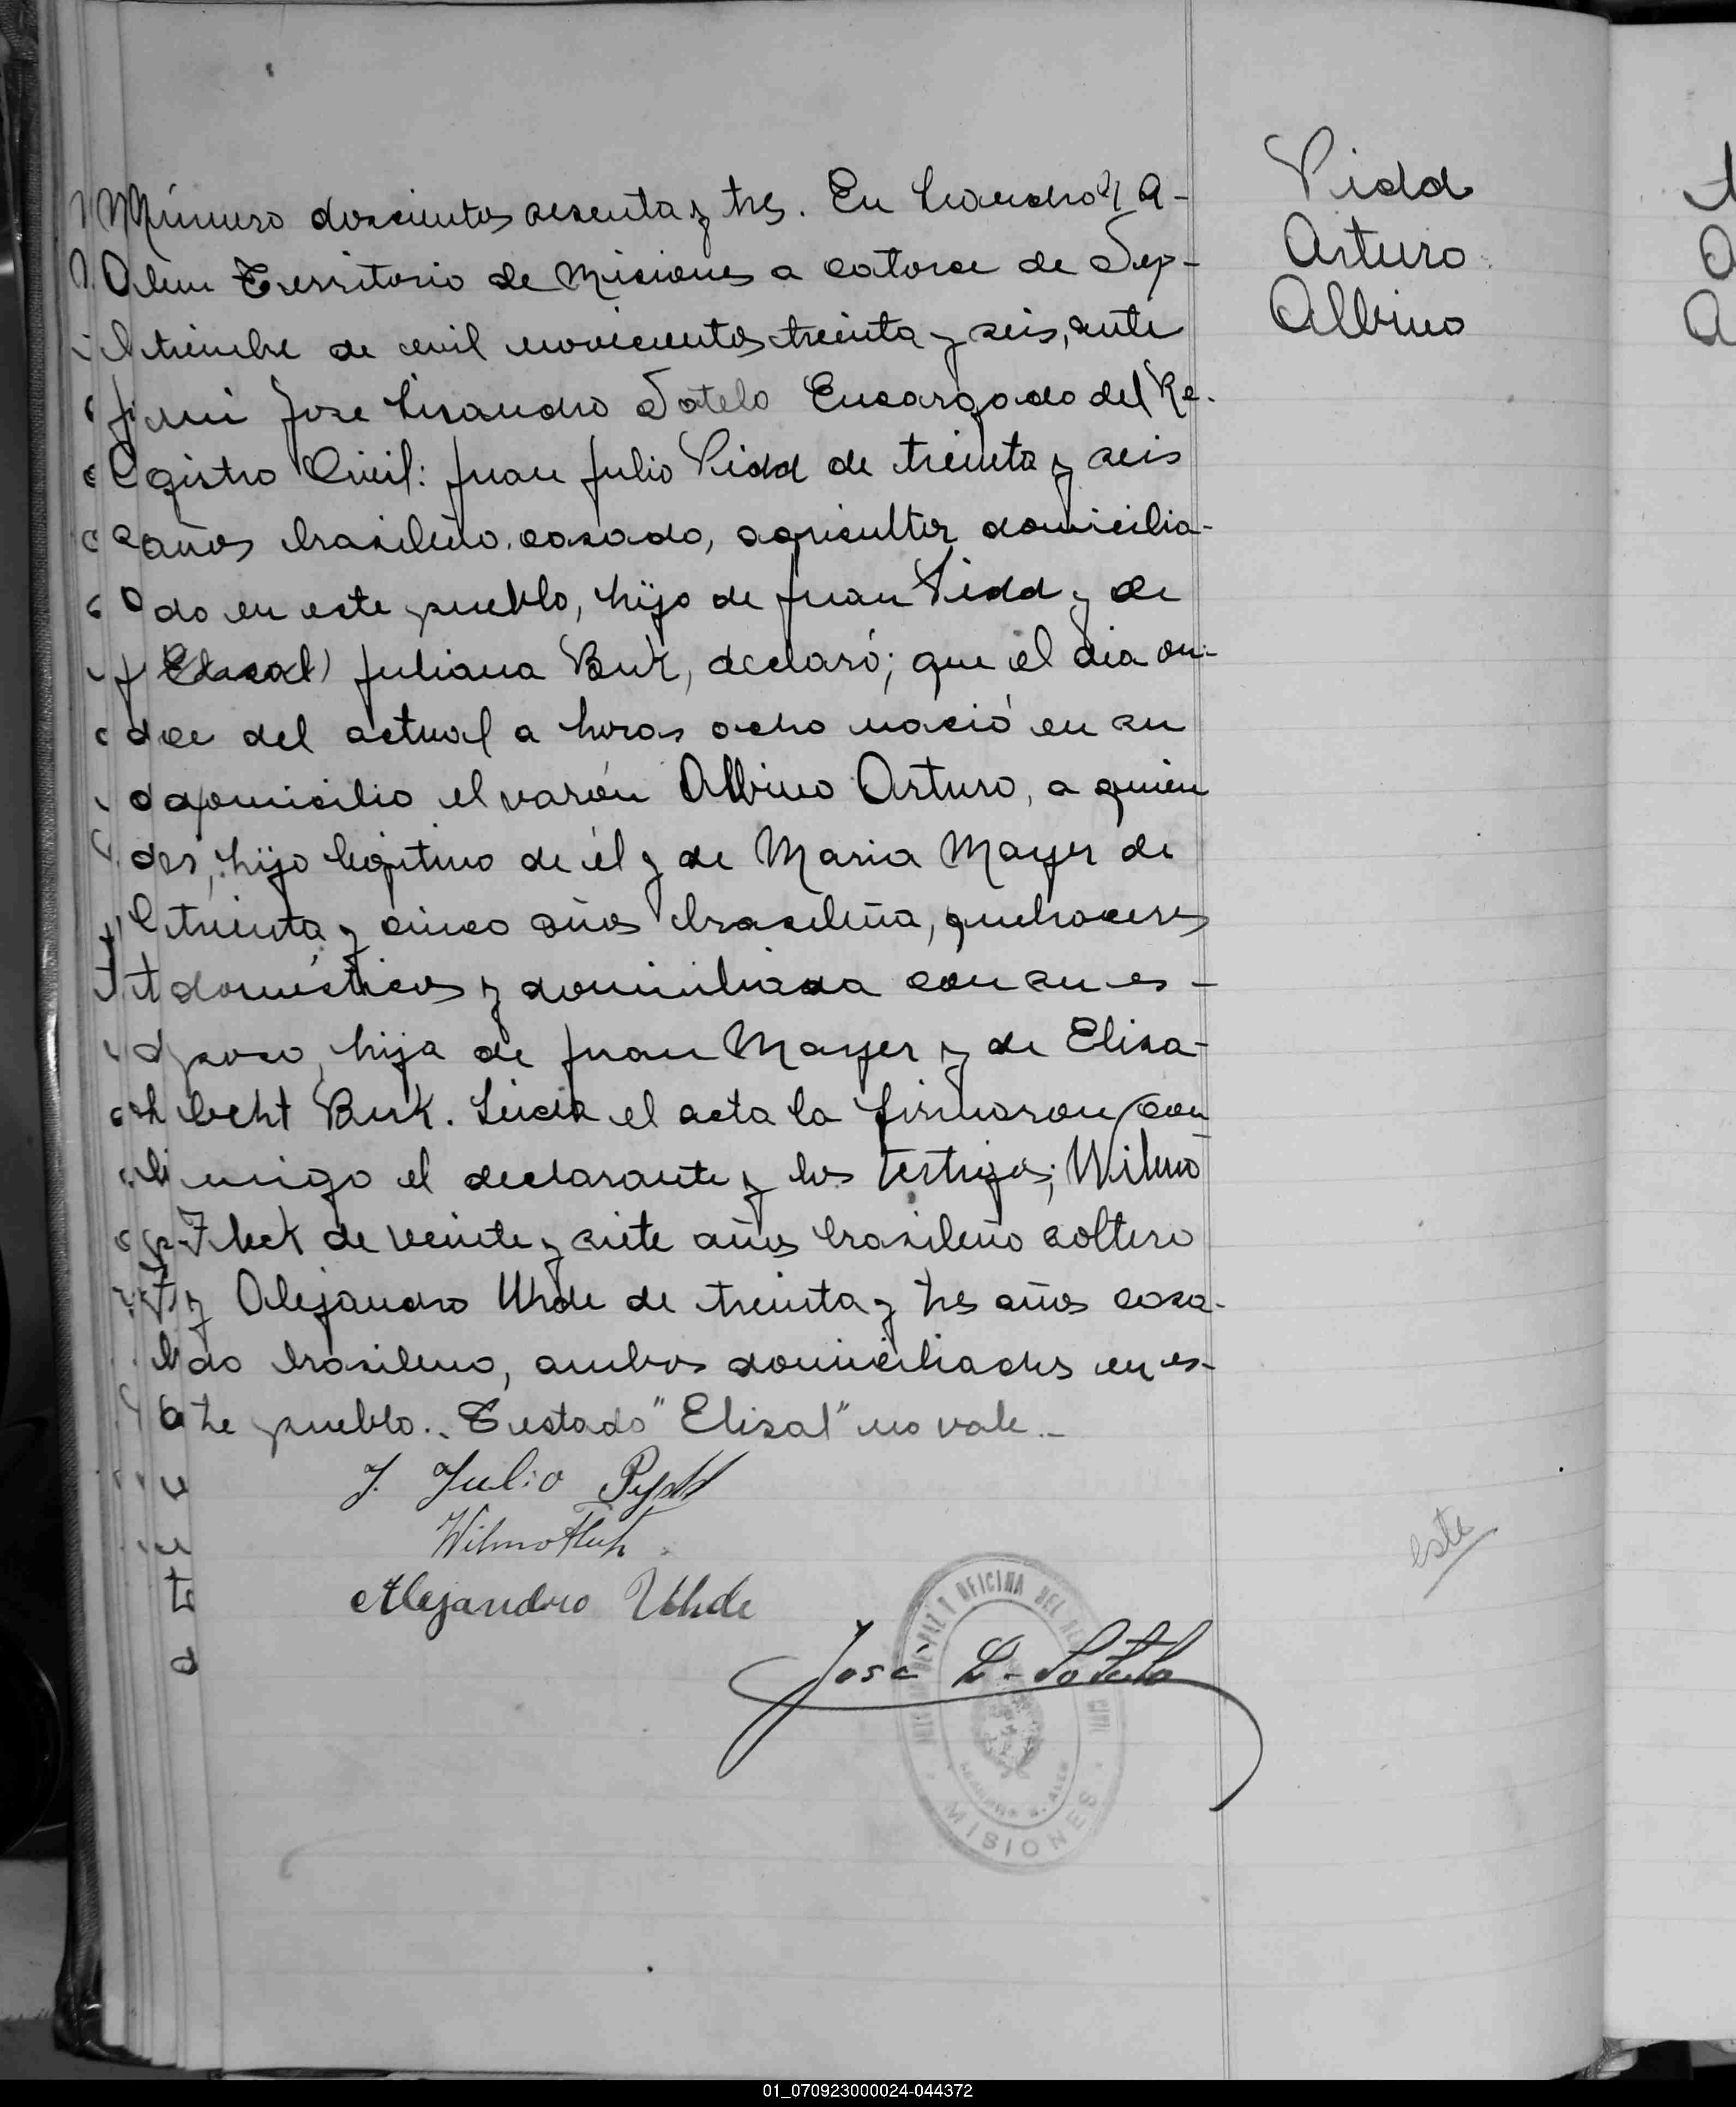 Vidd
Arturo
Albino
Número doscientos sesenta y tres. En Leandro N A-
Alem Territorio de Misiones a catorce de Sep-
tiembre de mil novecientos treinta y seis, ante
mi Jose Lisandro Sotelo Encargado del Re-
gistro Civil: Juan Julio Vidd de treinta y seis
años brasileño, casado, agricultor domicilia-
do en este pueblo, hijo de Juan Vidd y de
(Elisal) Juliana Buk, declaró; que el dia on-
ce del actual a horas ocho nació en su
domicilio el varón Albino Arturo, a quien
des, hijo legitimo de él y de Maria Mayer de
treinta y cinco años brasileña, quehaceres
domésticos y domiciliada con su es-
poso, hija de Juan Mayer y de Elisa-
becht Buk. Leida el acta la firmaron con
migo el declarante y los testigos; Wilmo
Fleck de veinte y siete años brasileño soltero
y Alejandro Uhde de treinta y tres años casa-
do brasileno, ambos domiciliados en es-
te pueblo.. Testado "Elisal" no vale.-
J. Julio Pydd
Wilmo Fleck
Alejandro Uhde
José L. Sotelo
OFICINA DEL
CIVIL
MISIONES
este
01_070923000024-044372